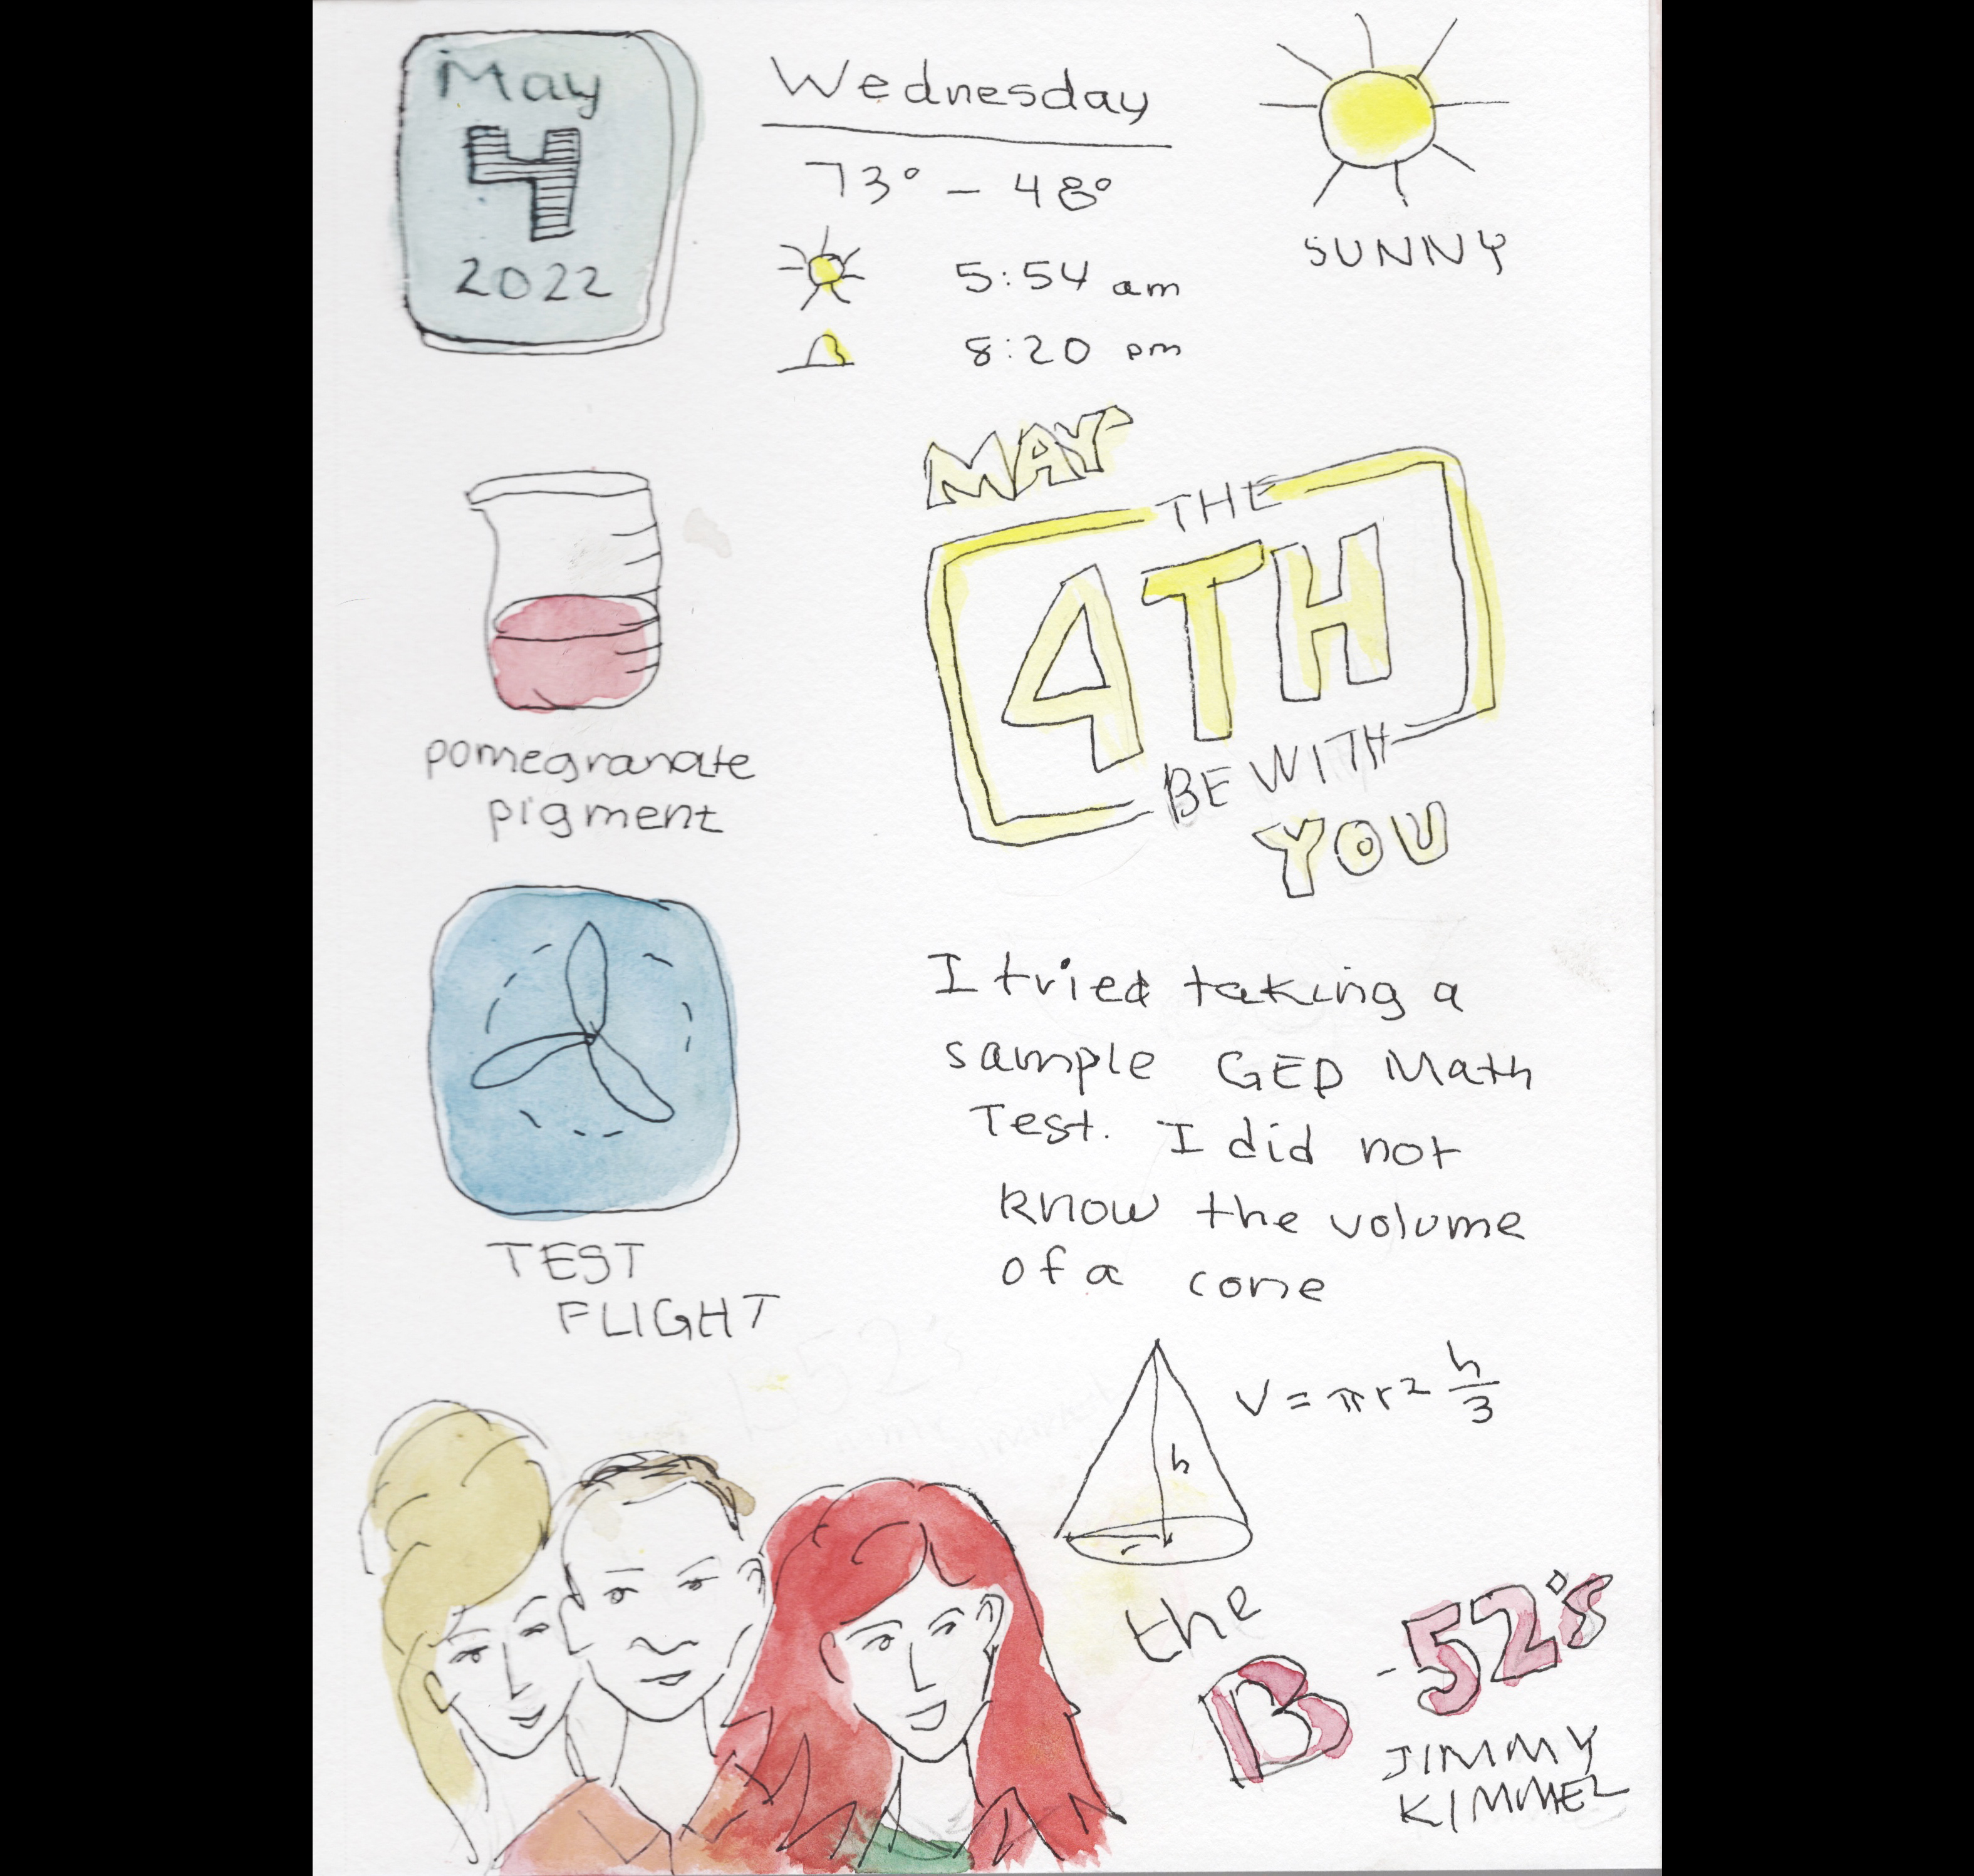 May
4
2022
Wednesday
73° - 48°
5:54 am
8:20 pm
SUNNY
pomegranate
pigment
MAY
THE
4TH
BE WITH
YOU
TEST
FLIGHT
I tried taking a
sample GED Math
Test. I did not
know the volume
of a cone
V = πr² h/3
h
r
the
B-52's
JIMMY
KIMMEL